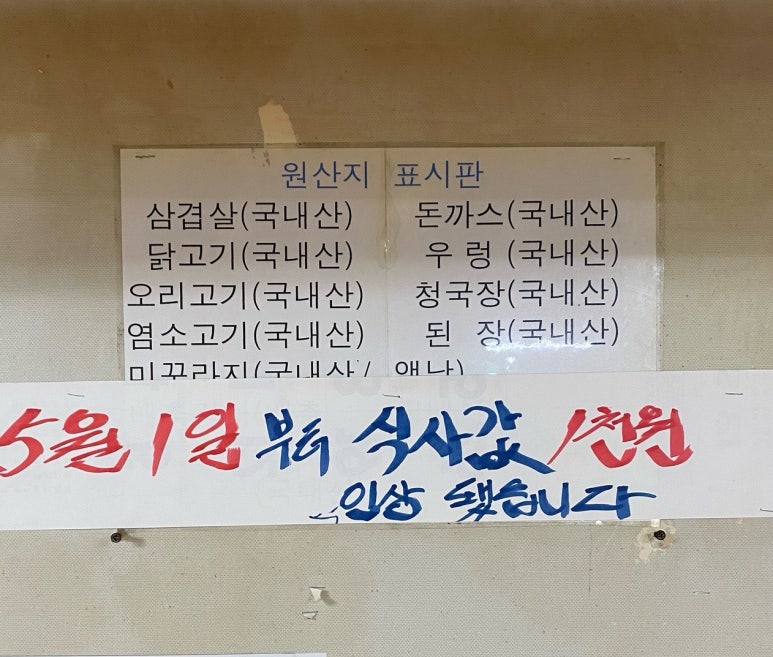 원산지 표시판
삼겹살(국내산) 돈까스(국내산)
닭고기(국내산) 우 렁 (국내산)
오리고기(국내산) 청국장(국내산)
염소고기(국내산) 된 장(국내산)
미꾸라지(국내산/
5월 1일 부터 식사값 1천원
인상 됐습니다